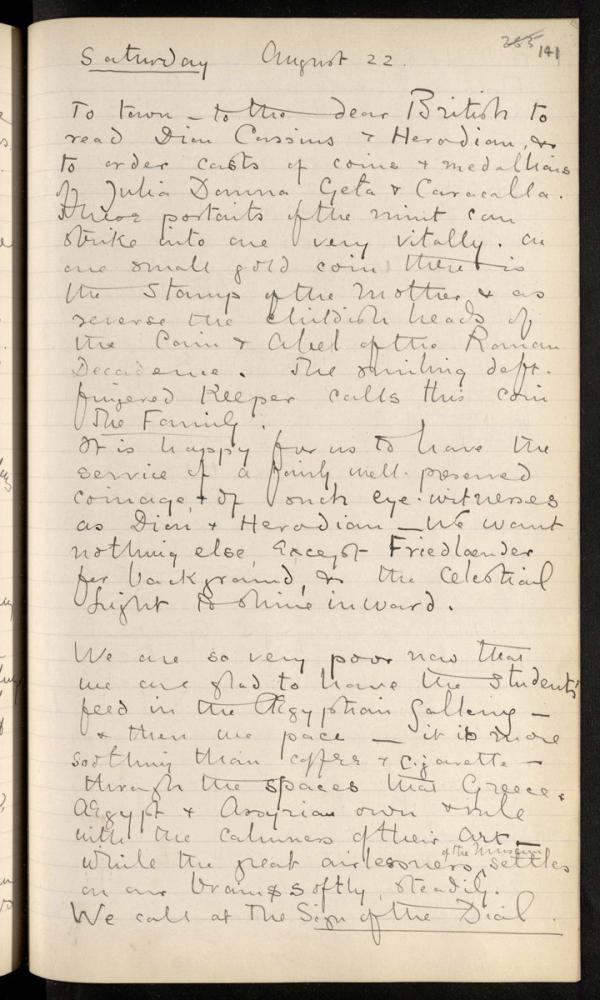 265 141
Saturday August 22.
To town – to the dear British to
read Dion Cassius & Herodian, &
to order casts of coins & medallions
of Julia Domna Geta & Caracalla.
These portraits of the mint can
strike into one very vitally. On
one small gold coin there is
the stamp of the Mother & as
reverse the childish heads of
the Cain & Abel of the Roman
Decadence. The smiling deft-
fingered Keeper calls this coin
The Family.
It is happy for us to have the
service of a fairly well-preserved
coinage, & of such eye-witnesses
as Dion & Herodian – We want
nothing else, except Friedlaender
for background, & the Celestial
Light to shine inward.
We are so very poor now that
we are glad to have the students'
feed in the Ægyptian Gallery –
& then we pace – it is more
soothing than coffee & cigarette –
through the spaces that Greece,
Ægypt & Assyria own & rule
with the calmness of their art –
while the great airlessness of the Museum settles
on our brains softly, steadily.
We call at The Sign of the Dial.